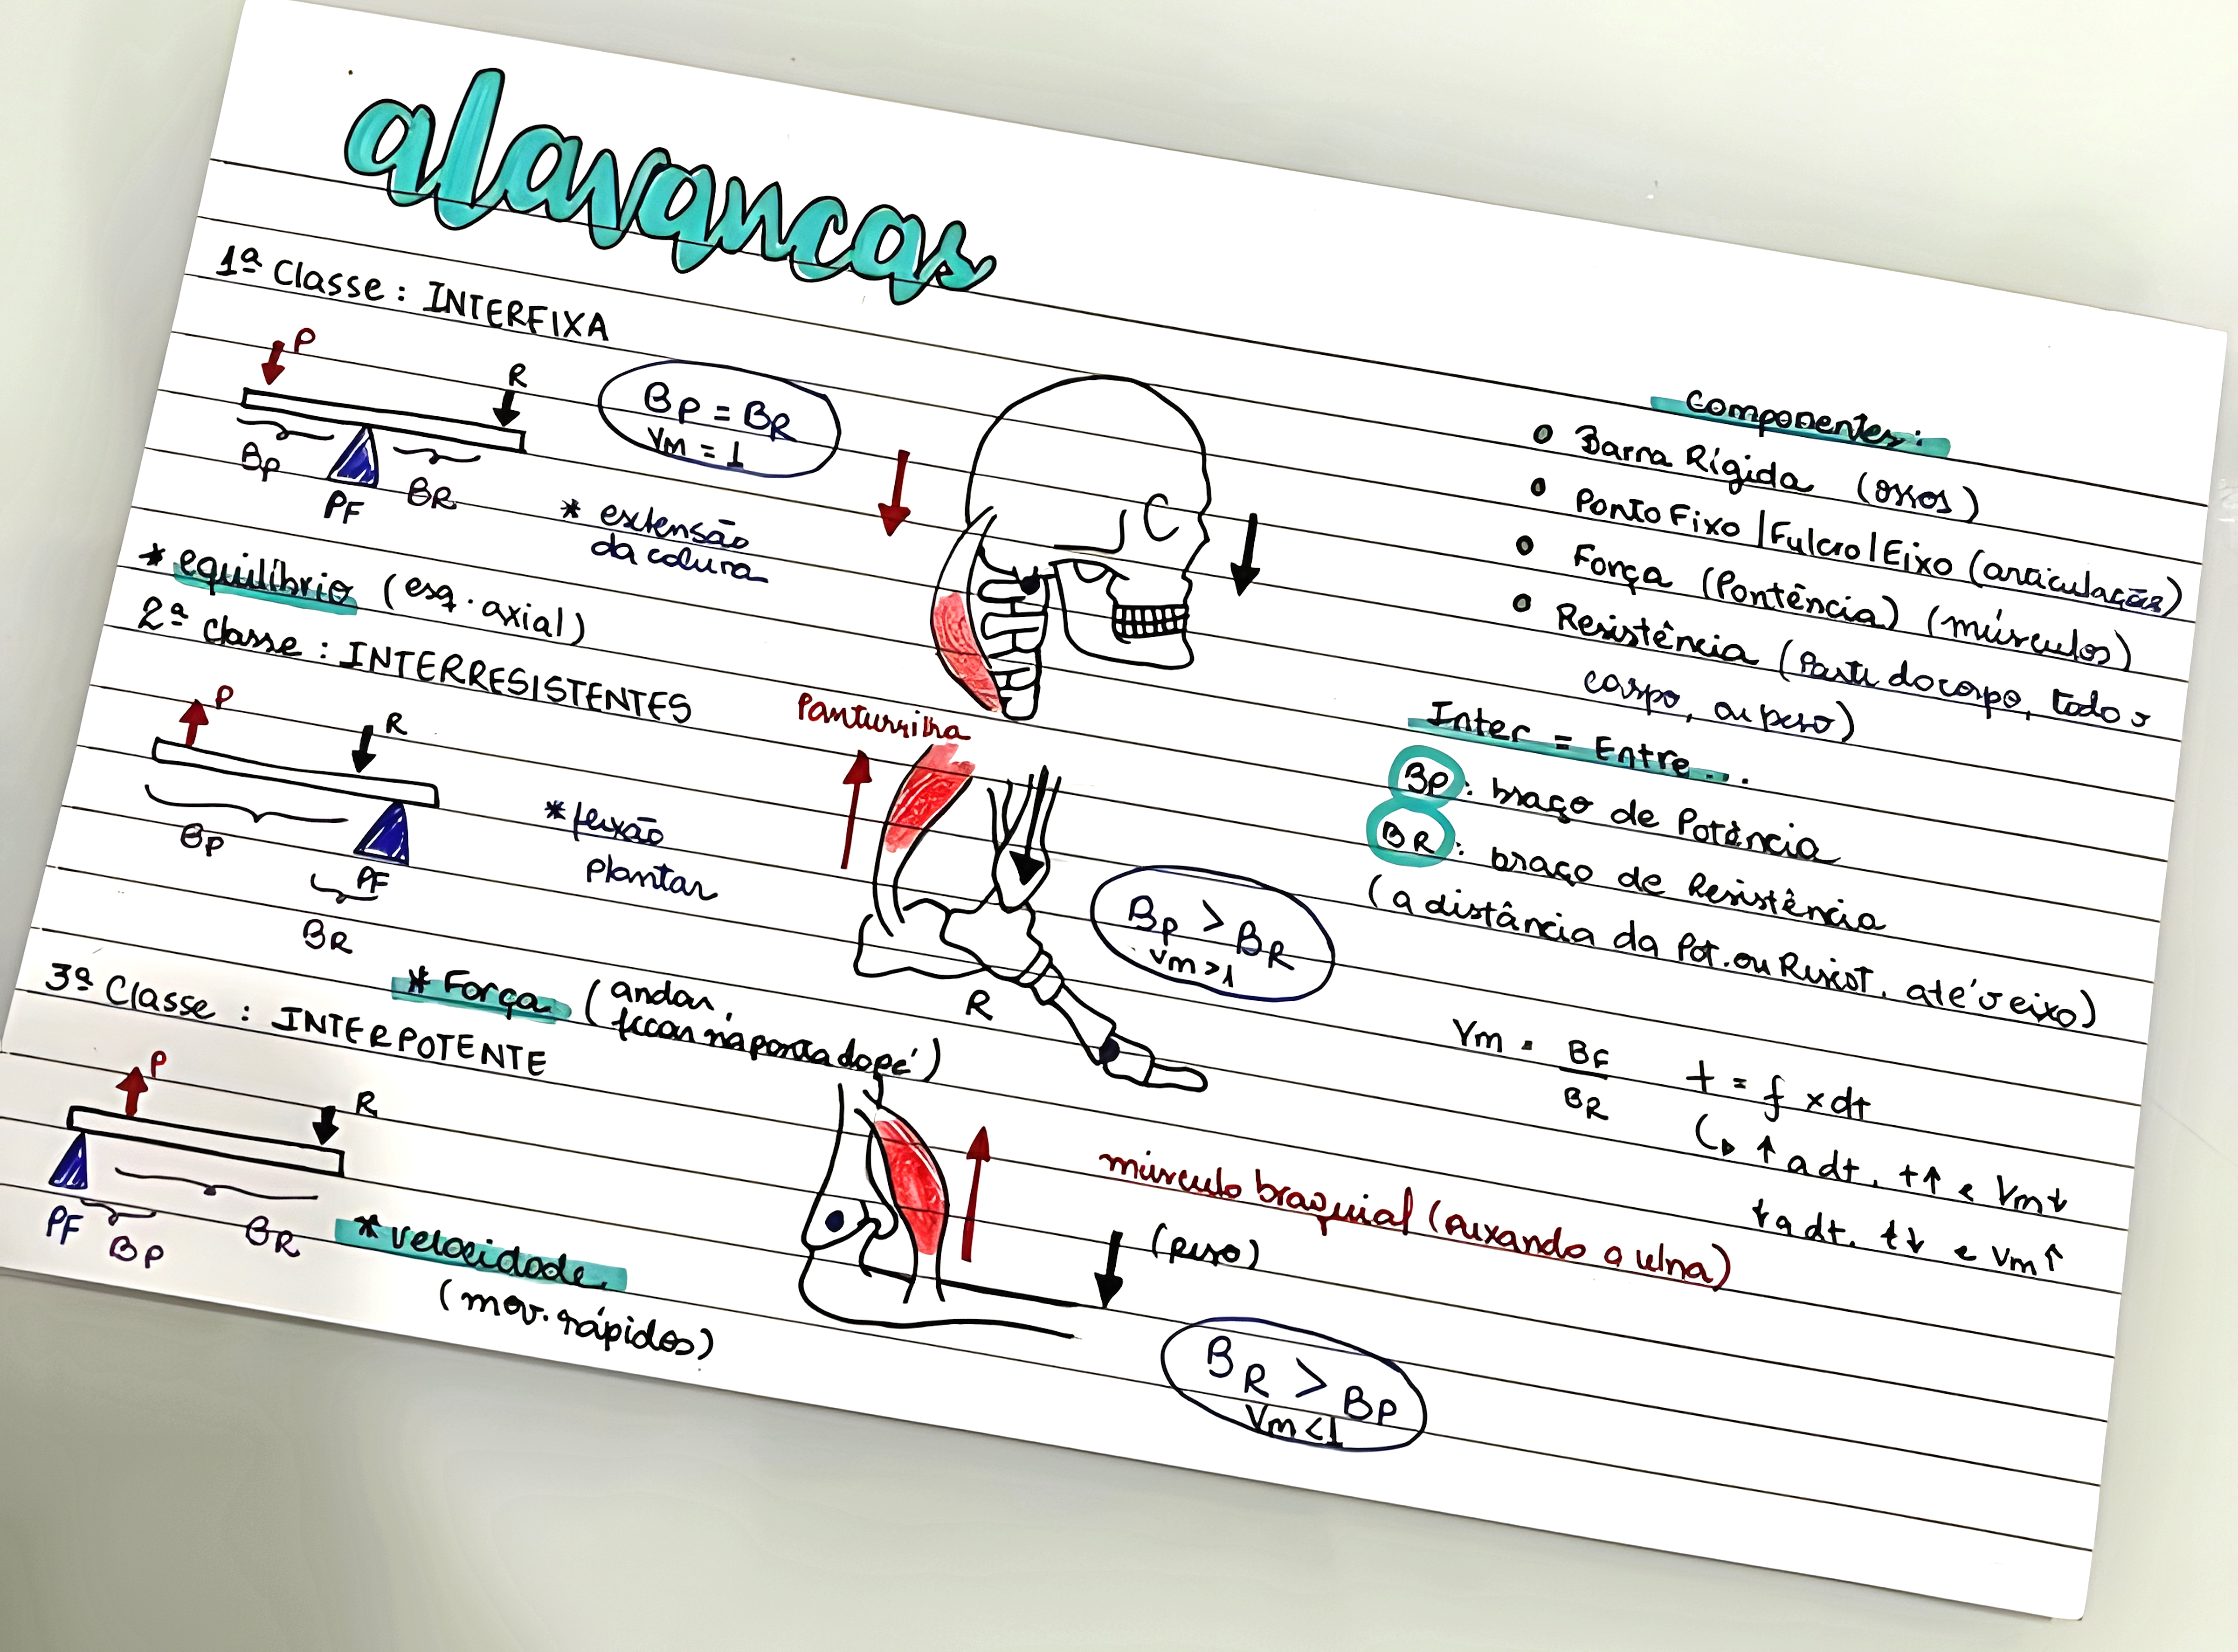 alavancas
1ª Classe: INTERFIXA
P
R
BP
PF
BR
BP = BR
Vm = 1
* extensão
da coluna
* equilíbrio (esq. axial)
2ª classe: INTERRESISTENTES
P
R
BP
PF
BR
* flexão
plantar
Panturrilha
R
BP > BR
Vm > 1
* Força (andar,
ficar na ponta do pé)
3ª Classe: INTERPOTENTE
P
R
PF
BP
BR
* velocidade
(mov. rápidos)
músculo braquial (puxando a ulna)
(peso)
BR > BP
Vm < 1
Componentes:
• Barra Rígida (ossos)
• Ponto Fixo | Fulcro | Eixo (articulação)
• Força (Pontência) (músculos)
• Resistência (Parte do corpo, todo o
corpo, ou peso)
Inter = Entre...
BP: braço de Potência
BR: braço de Resistência
(a distância da Pot. ou Resist. até o eixo)
Vm = BF
BR
t = f x dt
↑ a dt, t↑ e Vm↓
↓ a dt, t↓ e Vm↑